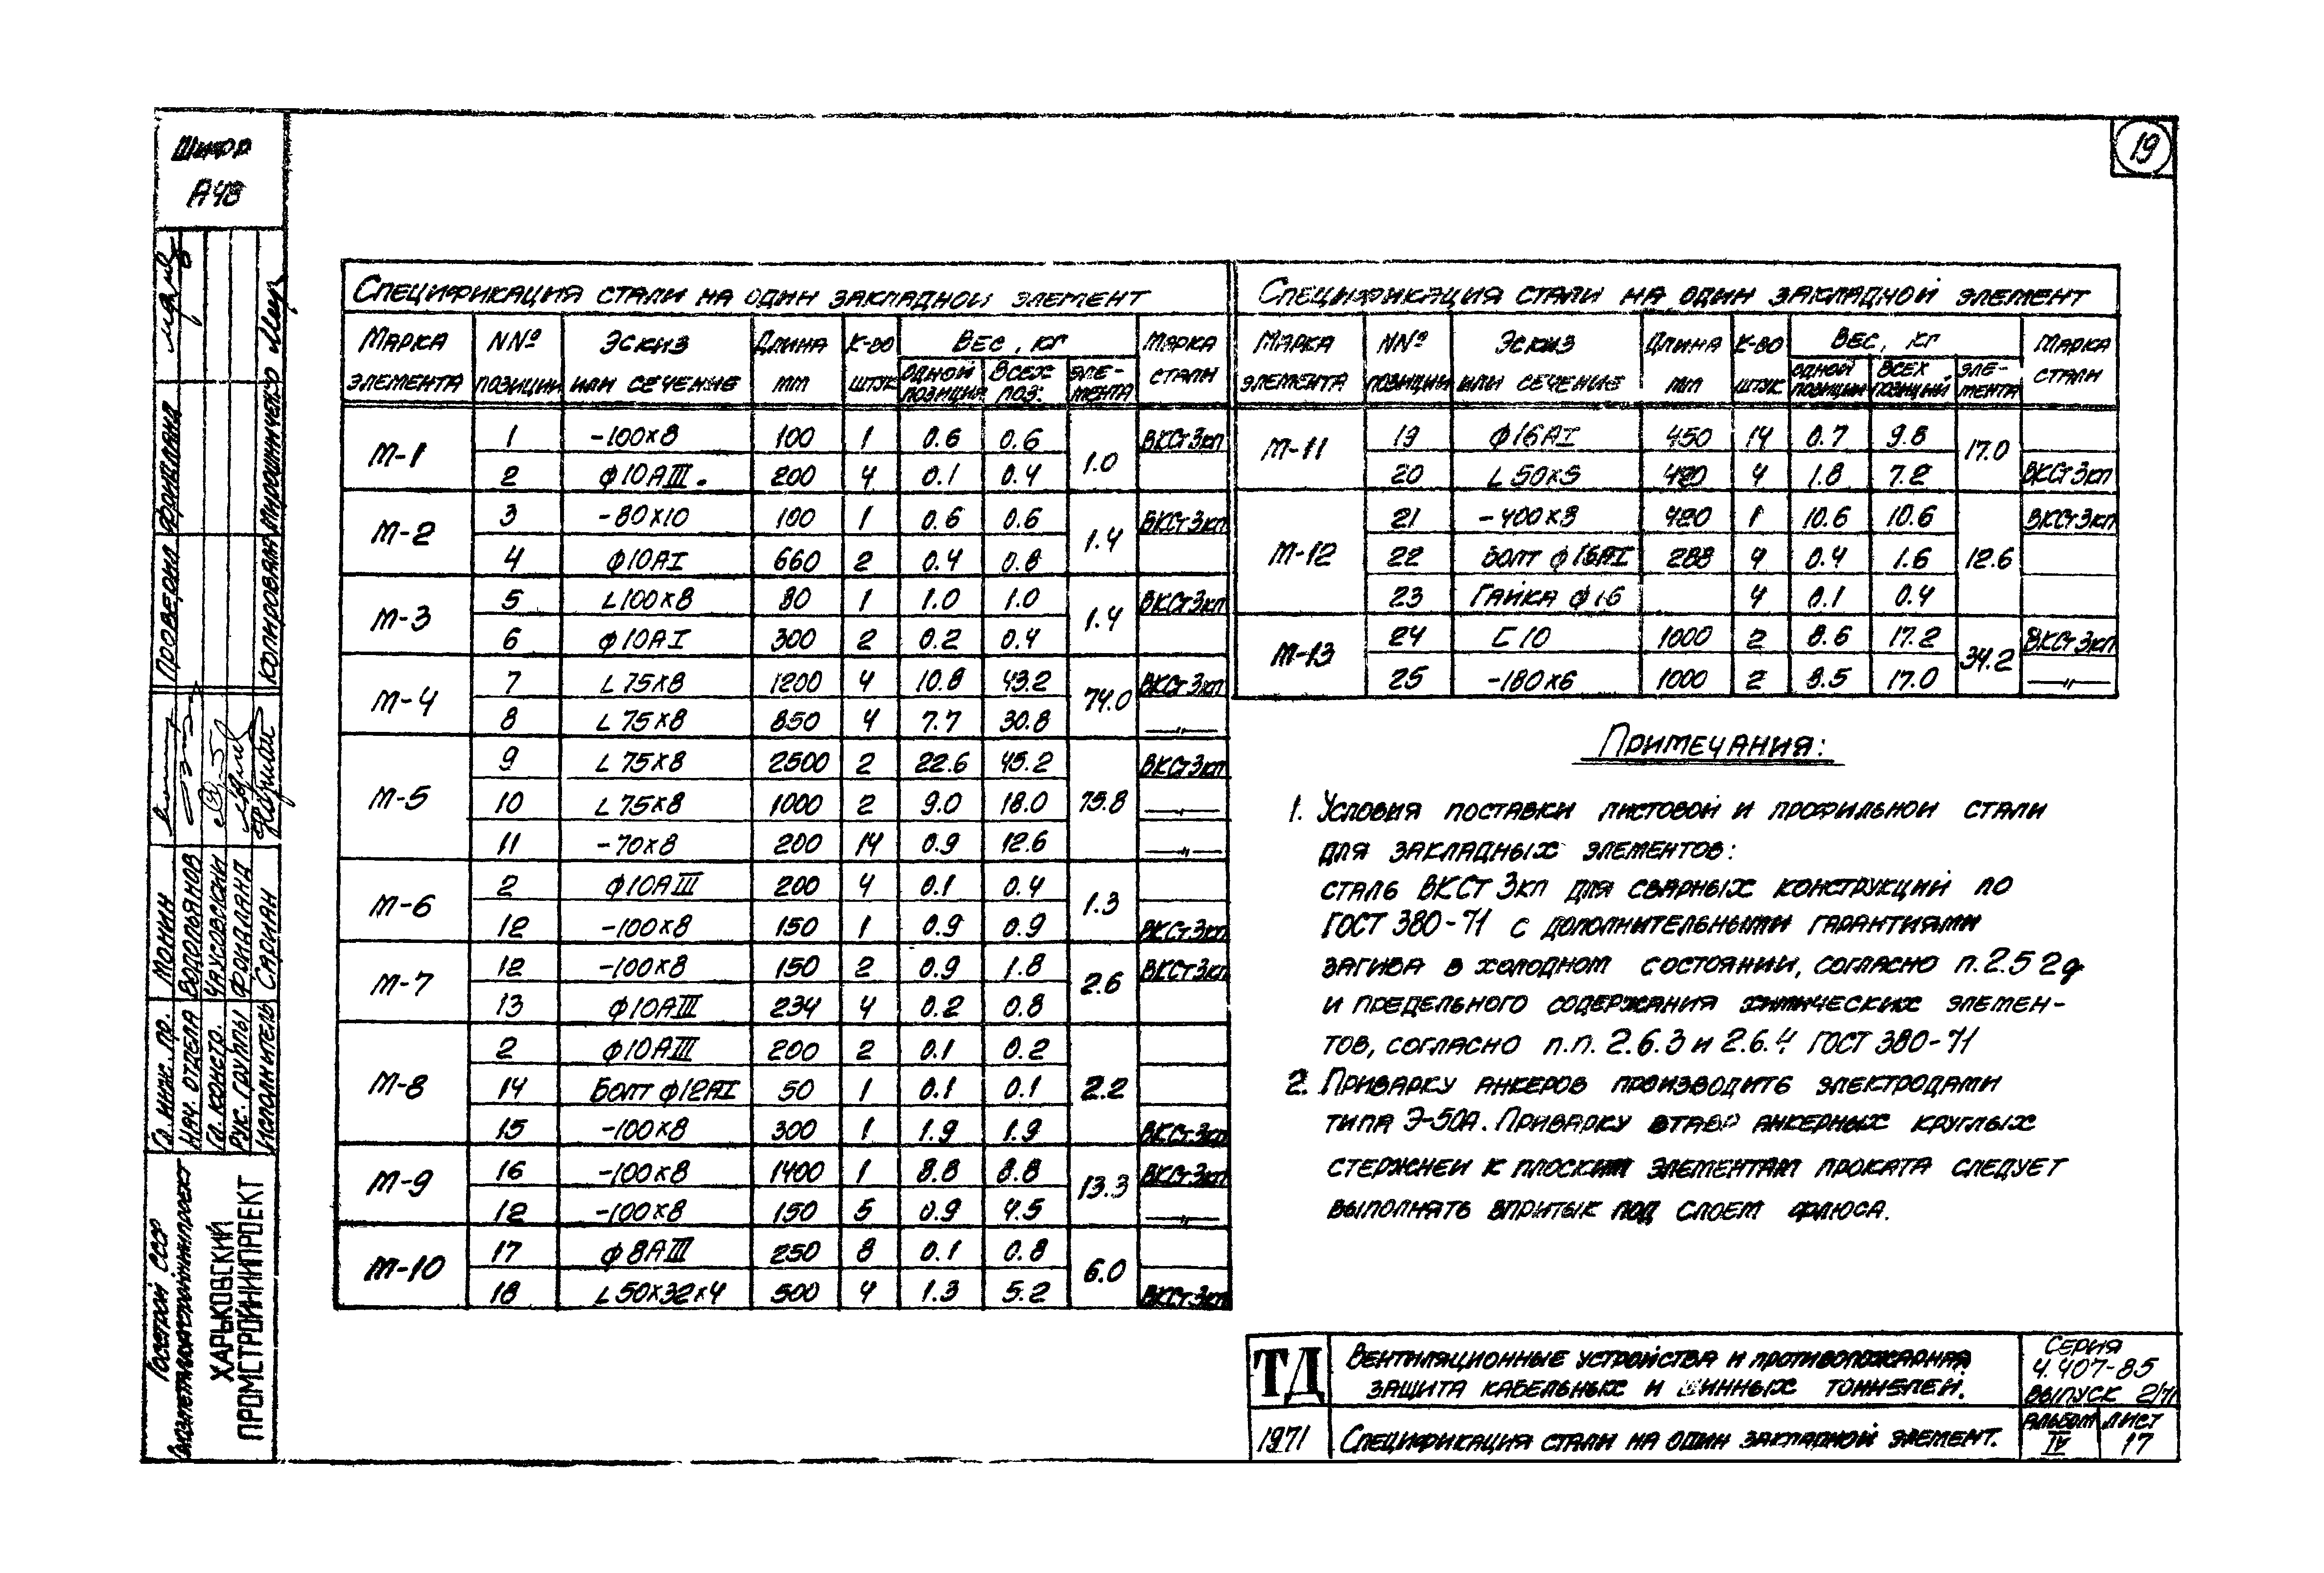 19
Шифр
А48
Спецификация стали на один закладной элемент
Марка элемента | NN№ позиции | Эскиз или сечение | Длина мм | К-во штук | Вес, кг одной позиции | Всех поз. | Эле-мента | Марка стали
М-1 | 1 | -100×8 | 100 | 1 | 0.6 | 0.6 | 1.0 | ВКСт3кп
2 | ф10АIII. | 200 | 4 | 0.1 | 0.4
М-2 | 3 | -80×10 | 100 | 1 | 0.6 | 0.6 | 1.4 | ВКСт3кп
4 | ф10АI | 660 | 2 | 0.4 | 0.8
М-3 | 5 | L100×8 | 80 | 1 | 1.0 | 1.0 | 1.4 | ВКСт3кп
6 | ф10АI | 300 | 2 | 0.2 | 0.4
М-4 | 7 | L75×8 | 1200 | 4 | 10.8 | 43.2 | 74.0 | ВКСт3кп
8 | L75×8 | 850 | 4 | 7.7 | 30.8 | —"—
М-5 | 9 | L75×8 | 2500 | 2 | 22.6 | 45.2 | 75.8 | ВКСт3кп
10 | L75×8 | 1000 | 2 | 9.0 | 18.0 | —"—
11 | -70×8 | 200 | 14 | 0.9 | 12.6 | —"—
М-6 | 2 | ф10АIII | 200 | 4 | 0.1 | 0.4 | 1.3
12 | -100×8 | 150 | 1 | 0.9 | 0.9 | ВКСт3кп
М-7 | 12 | -100×8 | 150 | 2 | 0.9 | 1.8 | 2.6 | ВКСт3кп
13 | ф10АIII | 234 | 4 | 0.2 | 0.8
М-8 | 2 | ф10АIII | 200 | 2 | 0.1 | 0.2 | 2.2
14 | Болт ф12АI | 50 | 1 | 0.1 | 0.1
15 | -100×8 | 300 | 1 | 1.9 | 1.9 | ВКСт3кп
М-9 | 16 | -100×8 | 1400 | 1 | 8.8 | 8.8 | 13.3 | ВКСт3кп
12 | -100×8 | 150 | 5 | 0.9 | 4.5 | —"—
М-10 | 17 | ф8АIII | 250 | 8 | 0.1 | 0.8 | 6.0
18 | L50×32×4 | 500 | 4 | 1.3 | 5.2 | ВКСт3кп
Спецификация стали на один закладной элемент
Марка элемента | NN№ позиции | Эскиз или сечение | Длина мм | К-во штук | Вес, кг одной позиции | Всех позиций | Эле-мента | Марка стали
М-11 | 19 | ф16АI | 450 | 14 | 0.7 | 9.8 | 17.0
20 | L50×5 | 4 | 1.8 | 7.2 | ВКСт3кп
М-12 | 21 | -400×8 | 420 | 1 | 10.6 | 10.6 | 12.6 | ВКСт3кп
22 | Болт ф16АI | 288 | 4 | 0.4 | 1.6
23 | Гайка ф16 | 4 | 0.1 | 0.4
М-13 | 24 | С10 | 1000 | 2 | 8.6 | 17.2 | 34.2 | ВКСт3кп
25 | -180×6 | 1000 | 2 | 8.5 | 17.0 | —"—
Примечания:
1. Условия поставки листовой и профильной стали
для закладных элементов:
сталь ВКСт3кп для сварных конструкций по
ГОСТ 380-71 с дополнительными гарантиями
загиба в холодном состоянии, согласно п.2.5.2д
и предельного содержания химических элемен-
тов, согласно п.п. 2.6.3 и 2.6.4 ГОСТ 380-71
2. Приварку анкеров производить электродами
типа Э-50А. Приварку втавр анкерных круглых
стержней к плоским элементам проката следует
выполнять впритык под слоем флюса.
ТД
Вентиляционные устройства и противопожарная
защита кабельных и шинных тоннелей.
Серия
4.407-85
Выпуск 2/71
1971
Спецификация стали на один закладной элемент.
Альбом
IV
Лист
17
Госстрой СССР
Союзметаллургстройниипроект
ХАРЬКОВСКИЙ
ПРОМСТРОЙНИИПРОЕКТ
Гл. инж. пр. Монин
Нач. отдела Водопьянов
Гл. констр. Чаусовский
Рук. группы Фридлянд
Исполнитель Сариан
Проверил Фридлянд
Копировала Мирошниченко